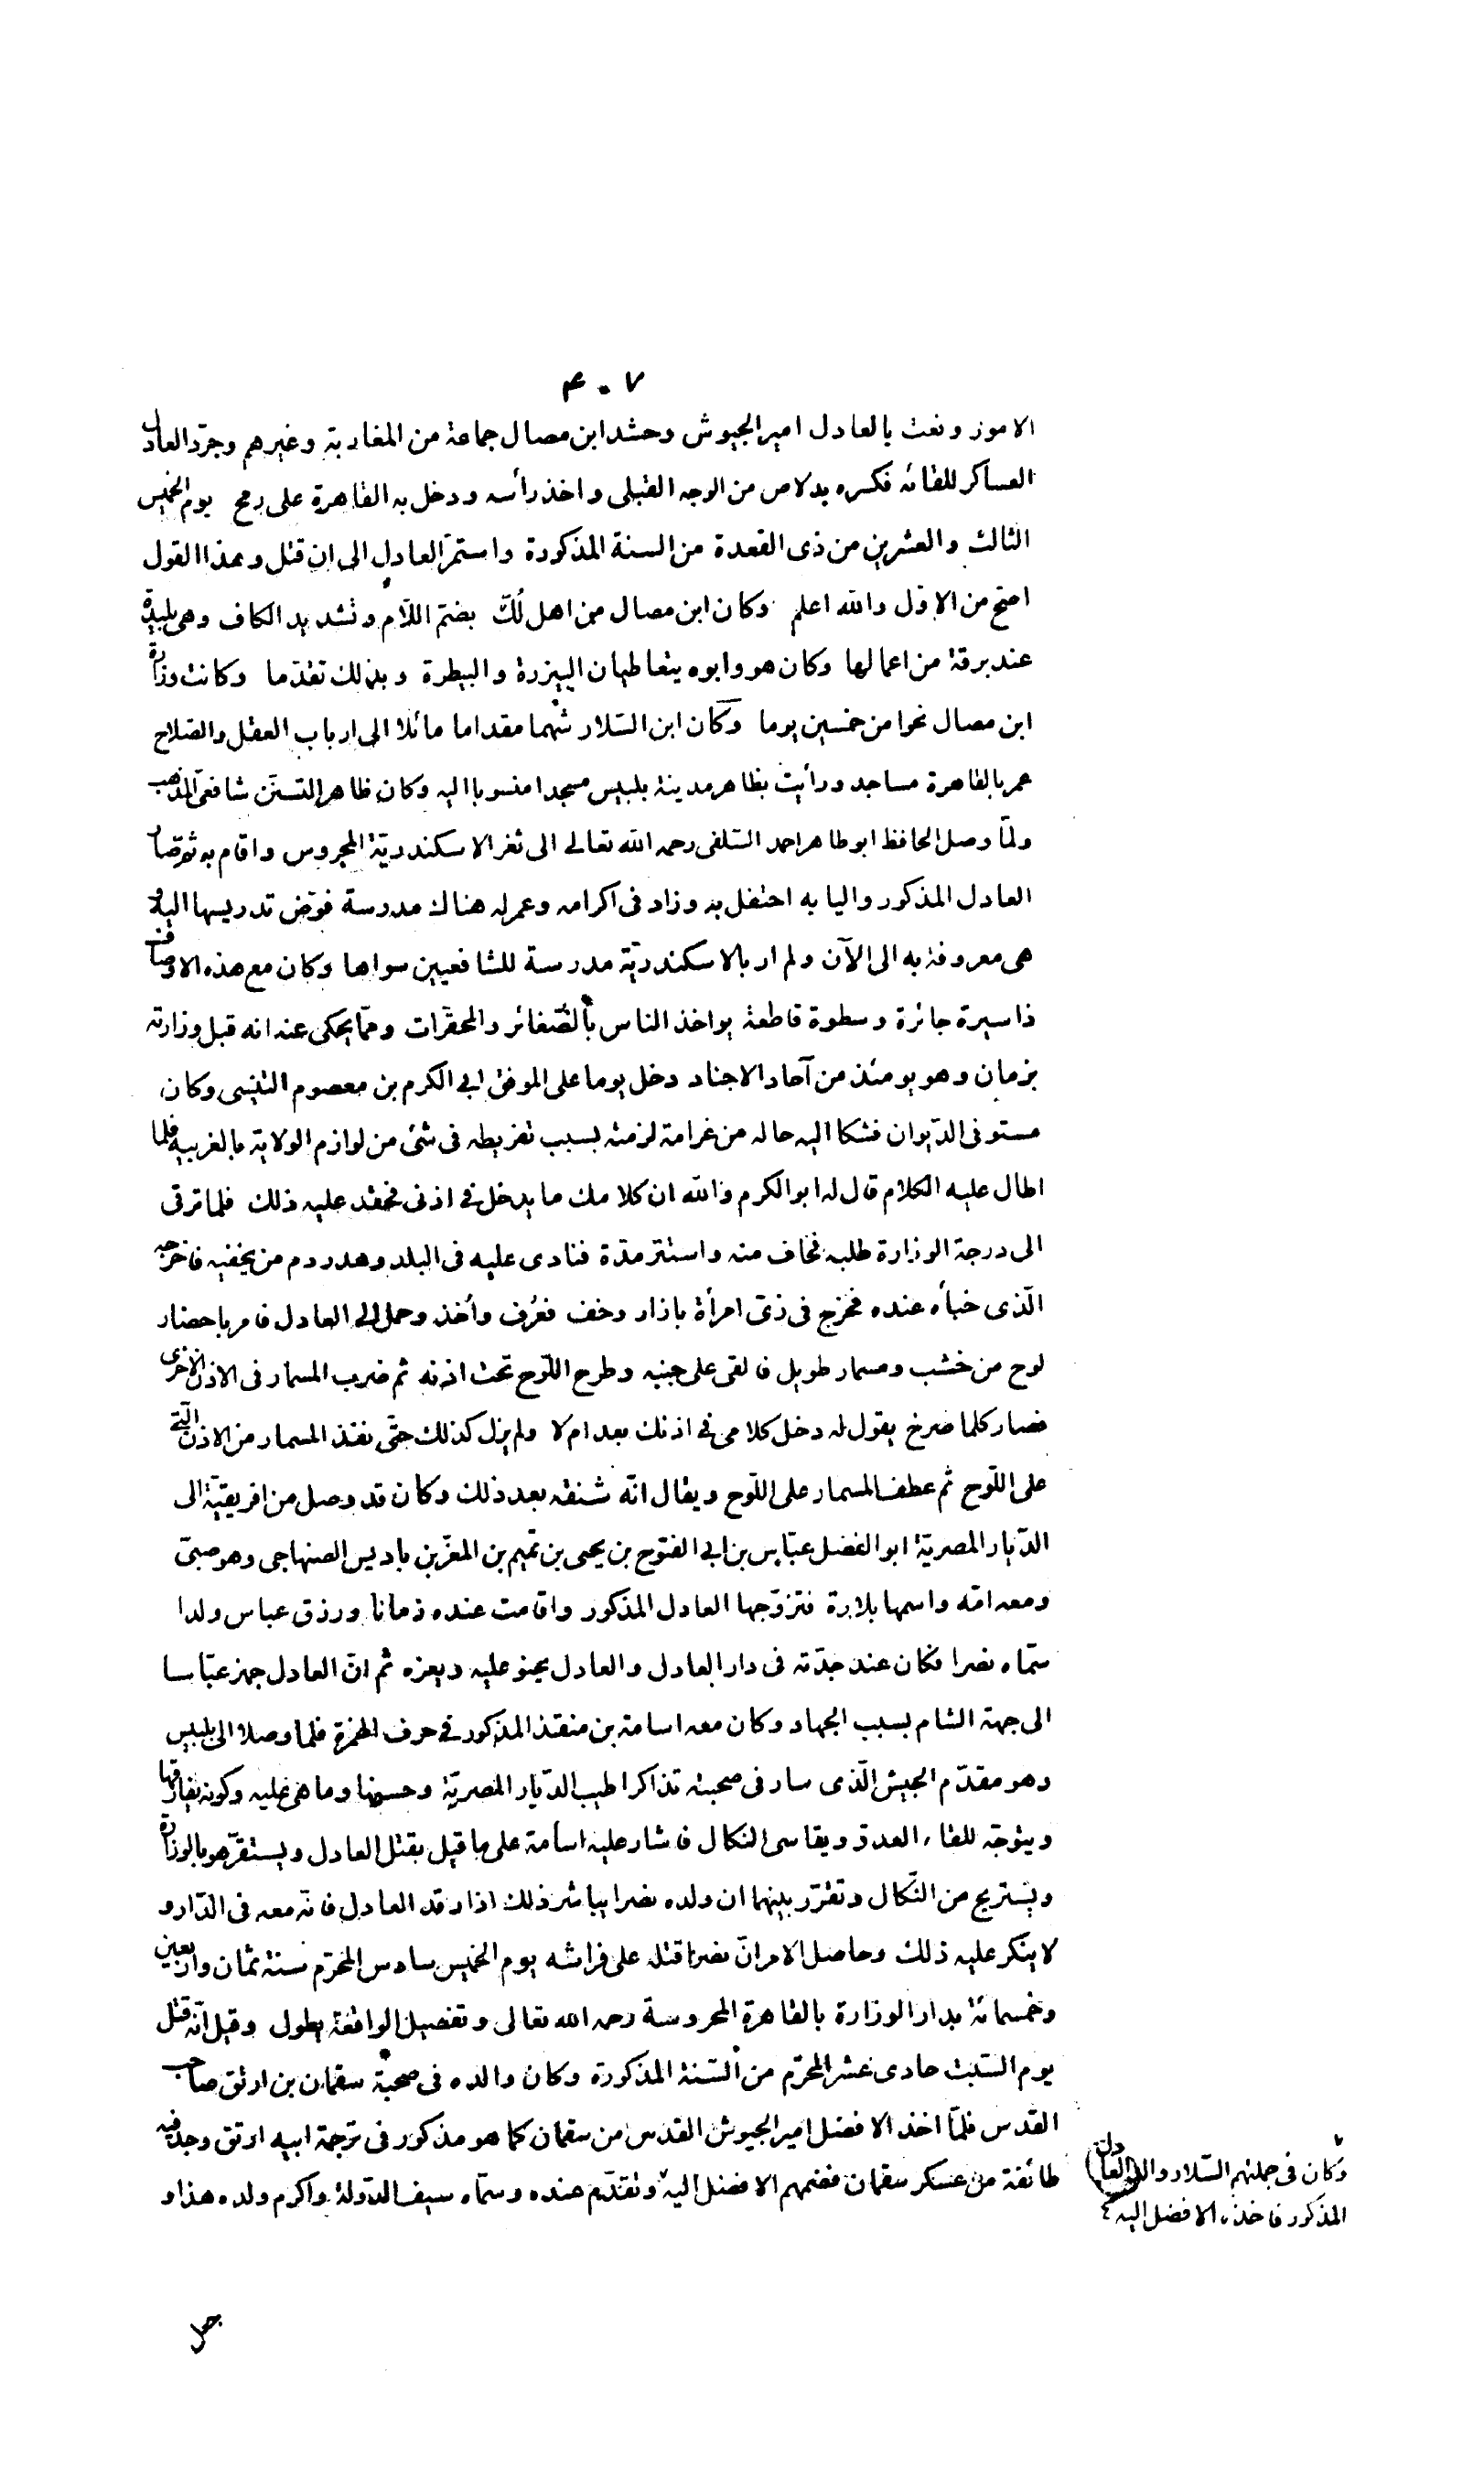 ۴۰۷
الامور ونعت بالعادل امير الجيوش وحشد ابن مصال جماعة من المغاربة وغيرهم وجرّد العادل
العساكر للقائه فكسره بدلاص من الوجه القبلى واخذ رأسه ودخل به القاهرة على رمح يوم الخميس
الثالث والعشرين من ذى القعدة من السنة المذكورة واستمرّ العادل الى ان قتل وهذا القول
اصحّ من الاوّل والله اعلم وكان ابن مصال من اهل لُكّ بضمّ اللّام وتشديد الكاف وهى بليدة
عند برقة من اعمالها وكان هو وابوه يتعاطيان البيزرة والبيطرة وبذلك تقدّما وكانت وزارة
ابن مصال نحوا من خمسين يوما وكان ابن السّلار شهما مقداما مائلا الى ارباب العقل والصّلاح
عمر بالقاهرة مساجد ورأيت بظاهر مدينة بلبيس مسجدا منسوبا اليه وكان ظاهر التسنّن شافعىّ المذهب
ولمّا وصل الحافظ ابو طاهر احمد السّلفى رحمه الله تعالى الى ثغر الاسكندريّة المحروس واقام به ثمّ صار
العادل المذكور واليا به احتفل به وزاد فى اكرامه وعمر له هناك مدرسة فوّض تدريسها اليه و
هى معروفة به الى الآن ولم ار بالاسكندريّة مدرسة للشافعيين سواها وكان مع هذه الاوصاف
ذا سيرة جائرة وسطوة قاطعة يواخذ الناس بالصّغائر والمحقّرات وممّا يحكى عنه انه قبل وزارته
بزمان وهو يومئذ من آحاد الاجناد دخل يوما على الموفق ابى الكرم بن معصوم التنيسى وكان
مستوفى الدّيوان فشكا اليه حاله من غرامة لزمته بسبب تفريطه فى شئ من لوازم الولاية بالغربيه فلما
اطال عليه الكلام قال له ابو الكرم والله ان كلامك ما يدخل فى اذنى فحقد عليه ذلك فلما ترقى
الى درجة الوزارة طلبه فخاف منه واستتر مدّة فنادى عليه فى البلد وهدر دم من يخفيه فاخرجه
الّذى خبأه عنده فخرج فى زىّ امرأة بازار وخف فعُرف وأخذ وحمل الى العادل فامر باحضار
لوح من خشب ومسمار طويل فالقى على جنبه وطرح اللّوح تحت اذنه ثم ضرب المسمار فى الاذن الاخرى
فصار كلما صرخ يقول له دخل كلامى فى اذنك بعد ام لا ولم يزل كذلك حتّى نفذ المسمار من الاذن الّتى
على اللّوح ثم عطف المسمار على اللّوح ويقال انّه شنقه بعد ذلك وكان قد وصل من افريقيّة الى
الدّيار المصريّة ابو الفضل عبّاس بن ابى الفتوح بن يحيى بن تميم بن المعزّ بن باديس الصنهاجى وهو صبىّ
ومعه امّه واسمها بلارة فتزوّجها العادل المذكور واقامت عنده زمانا ورزق عباس ولدا
سمّاه نصرا فكان عند جدّته فى دار العادل والعادل يحنو عليه ويعزه ثم انّ العادل جهز عبّاسا
الى جهة الشام بسبب الجهاد وكان معه اسامة بن منقذ المذكور فى حرف الهمزة فلما وصلا الى بلبيس
وهو مقدّم الجيش الّذى سار فى صحبته تذاكرا طيب الدّيار المصريّة وحسنها وما هى عليه وكونه يفارقها
ويتوجّه للقاء العدوّ ويقاسى النكال فاشار عليه اسامة على ما قيل بقتل العادل ويستقرّ هو بالوزارة
ويستريح من النّكال وتقرّر بينهما ان ولده نصرا يباشر ذلك اذا رقد العادل فانّه معه فى الدّار و
لا ينكر عليه ذلك وحاصل الامر انّ نصرا قتله على فراشه يوم الخميس سادس المحرّم سنة ثمان واربعين
وخمسمائة بدار الوزارة بالقاهرة المحروسة رحمه الله تعالى وتفصيل الواقعة يطول وقيل انّه قتل
يوم السّبت حادى عشر المحرّم من السّنة المذكورة وكان والده فى صحبة سقمان بن ارتق صاحب
القدس فلمّا اخذ الافضل امير الجيوش القدس من سقمان كما هو مذكور فى ترجمة ابيه ارتق وجد فيه
طائفة من عسكر سقمان فضمهم الافضل اليه وتقدّم عنده وسمّاه سيف الدّولة واكرم ولده هذا و
وكان فى جملتهم السّلار والد العادل
المذكور فاخذه الافضل اليه
جعل